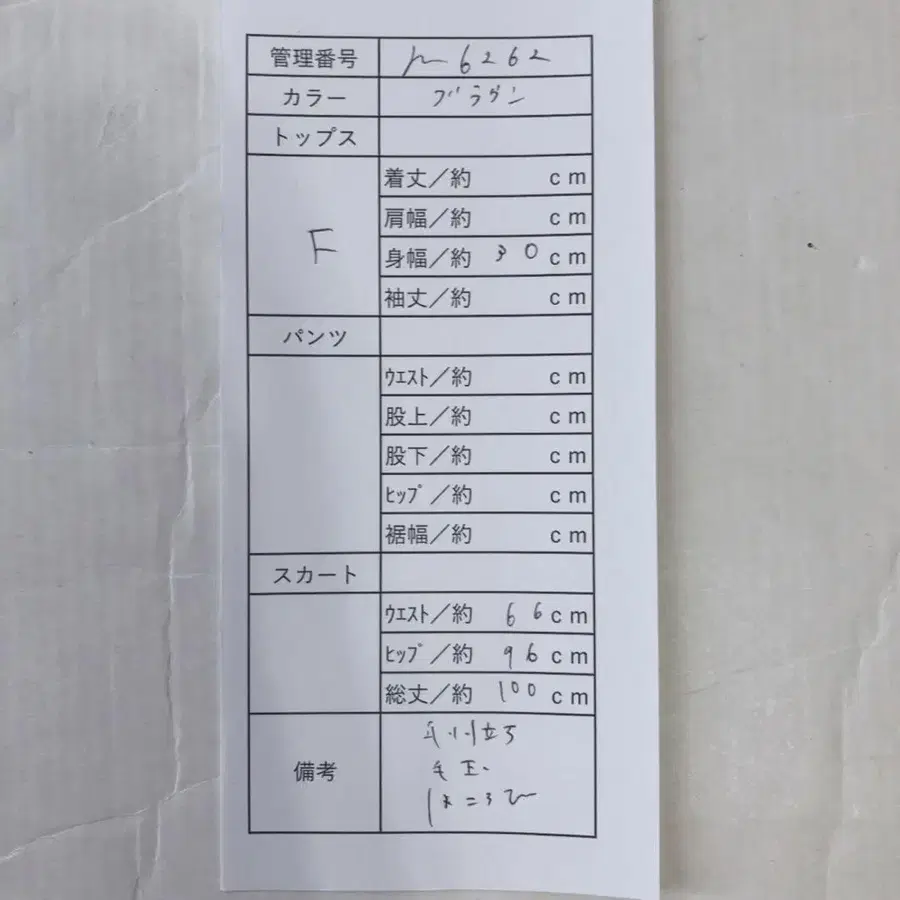 管理番号 m6262
カラー ブラウン
トップス
F
着丈／約 cm
肩幅／約 cm
身幅／約 30cm
袖丈／約 cm
パンツ
ｳｴｽﾄ／約 cm
股上／約 cm
股下／約 cm
ﾋｯﾌﾟ／約 cm
裾幅／約 cm
スカート
ｳｴｽﾄ／約 66cm
ﾋｯﾌﾟ／約 96cm
総丈／約 100cm
備考
毛羽立ち
毛玉、
ほころび